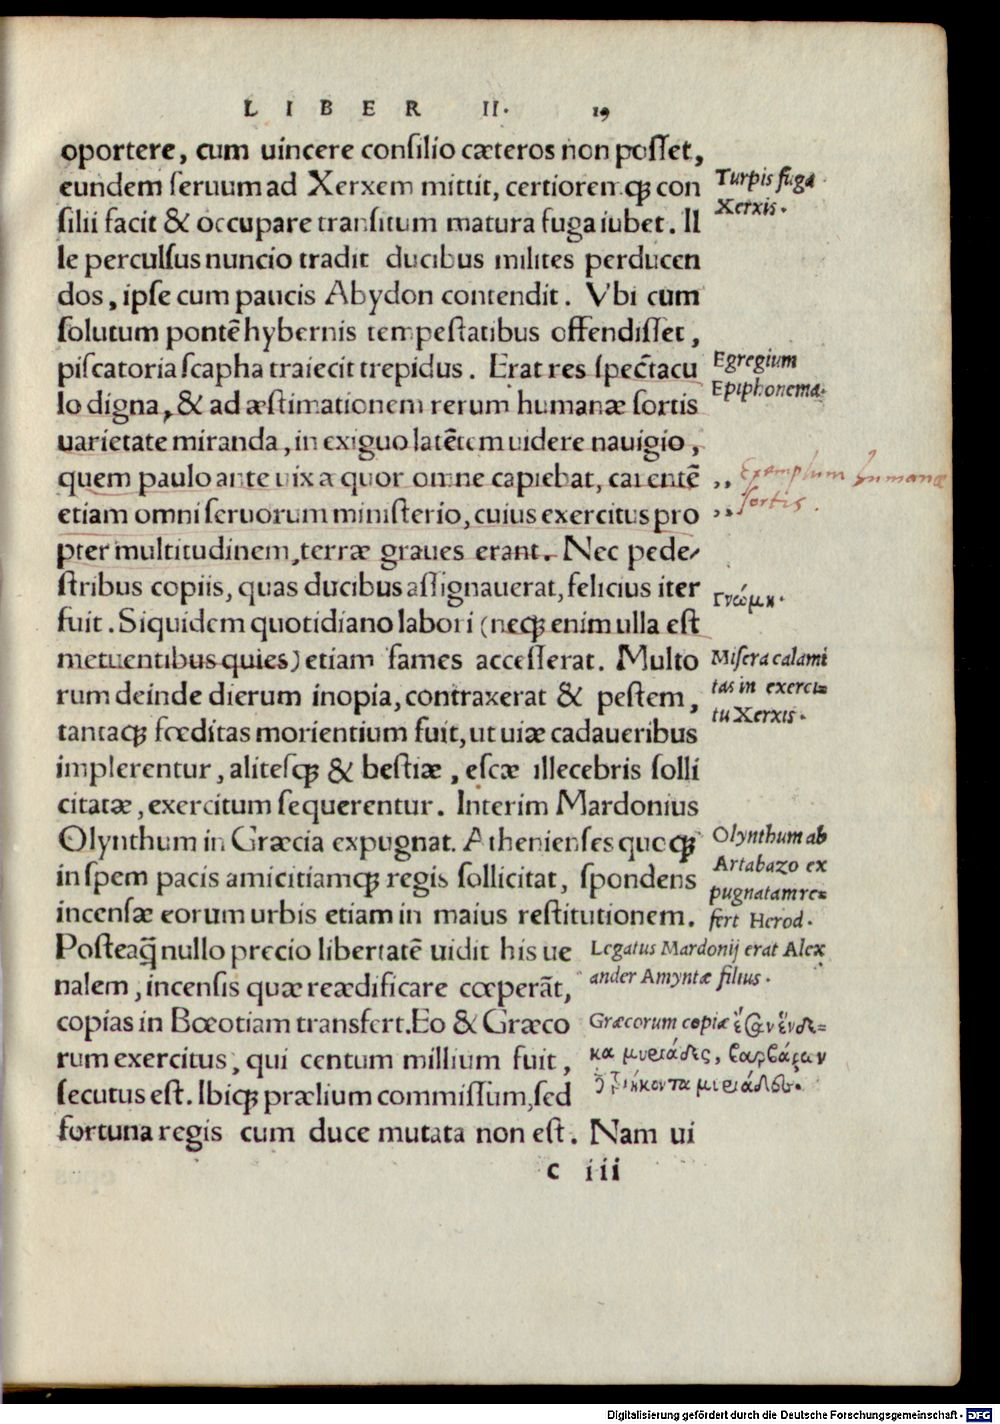 LIBER II. 19
oportere, cum uincere consilio cæteros non posset,
eundem seruum ad Xerxem mittit, certioremq́; con
silii facit & occupare transitum matura fuga iubet. Il
le perculsus nuncio tradit ducibus milites perducen
dos, ipse cum paucis Abydon contendit. Vbi cum
solutum pontē hybernis tempestatibus offendisset,
piscatoria scapha traiecit trepidus. Erat res spectacu
lo digna, & ad æstimationem rerum humanæ sortis
uarietate miranda, in exiguo latētem uidere nauigio,
quem paulo ante uix æquor omne capiebat, carentē
etiam omni seruorum ministerio, cuius exercitus pro
pter multitudinem, terræ graues erant. Nec pede-
stribus copiis, quas ducibus assignauerat, felicius iter
fuit. Siquidem quotidiano labori (neq; enim ulla est
metuentibus quies) etiam fames accesserat. Multo
rum deinde dierum inopia, contraxerat & pestem,
tantaq; fœditas morientium fuit, ut uiæ cadaueribus
implerentur, alitesq; & bestiæ, escæ illecebris solli
citatæ, exercitum sequerentur. Interim Mardonius
Olynthum in Græcia expugnat. Athenienses quoq;
in spem pacis amicitiamq; regis sollicitat, spondens
incensæ eorum urbis etiam in maius restitutionem.
Posteaq̃ nullo precio libertatē uidit his ue
nalem, incensis quæ reædificare cœperāt,
copias in Bœotiam transfert. Eo & Græco
rum exercitus, qui centum millium fuit,
secutus est. Ibiq; prælium commissum, sed
fortuna regis cum duce mutata non est. Nam ui
c iii
Turpis fuga
Xerxis.
Egregium
Epiphonema.
,, Exemplum humanæ
,, sortis.
Γνώμη.
Misera calami
tas in exerci=
tu Xerxis.
Olynthum ab
Artabazo ex
pugnatam re=
fert Herod.
Legatus Mardonij erat Alex
ander Amyntæ filius.
Græcorum copiæ ἕνδε=
κα μυριάδες, βαρβάρων
τριήκοντα μυριάδες.
Digitalisierung gefördert durch die Deutsche Forschungsgemeinschaft - DFG